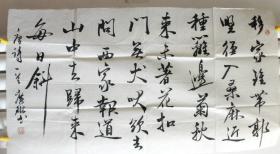 移家虽帶郭
野径入桑麻近
種籬邊菊秋
来未著花扣
门无犬吠欲去
問西家報道
山中去歸来
每日斜
唐詩一首